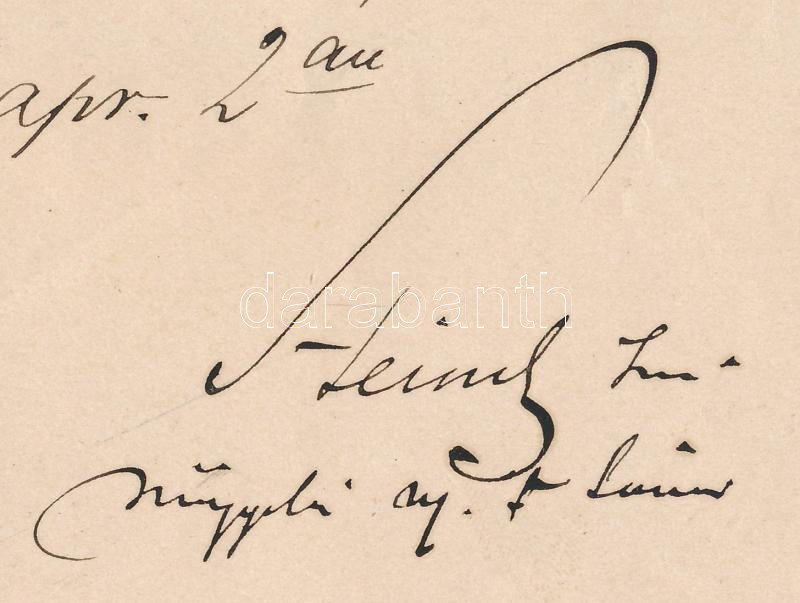 apr. 2 án
Steindl Im
darabanth
műegyetemi ny. r. tanár